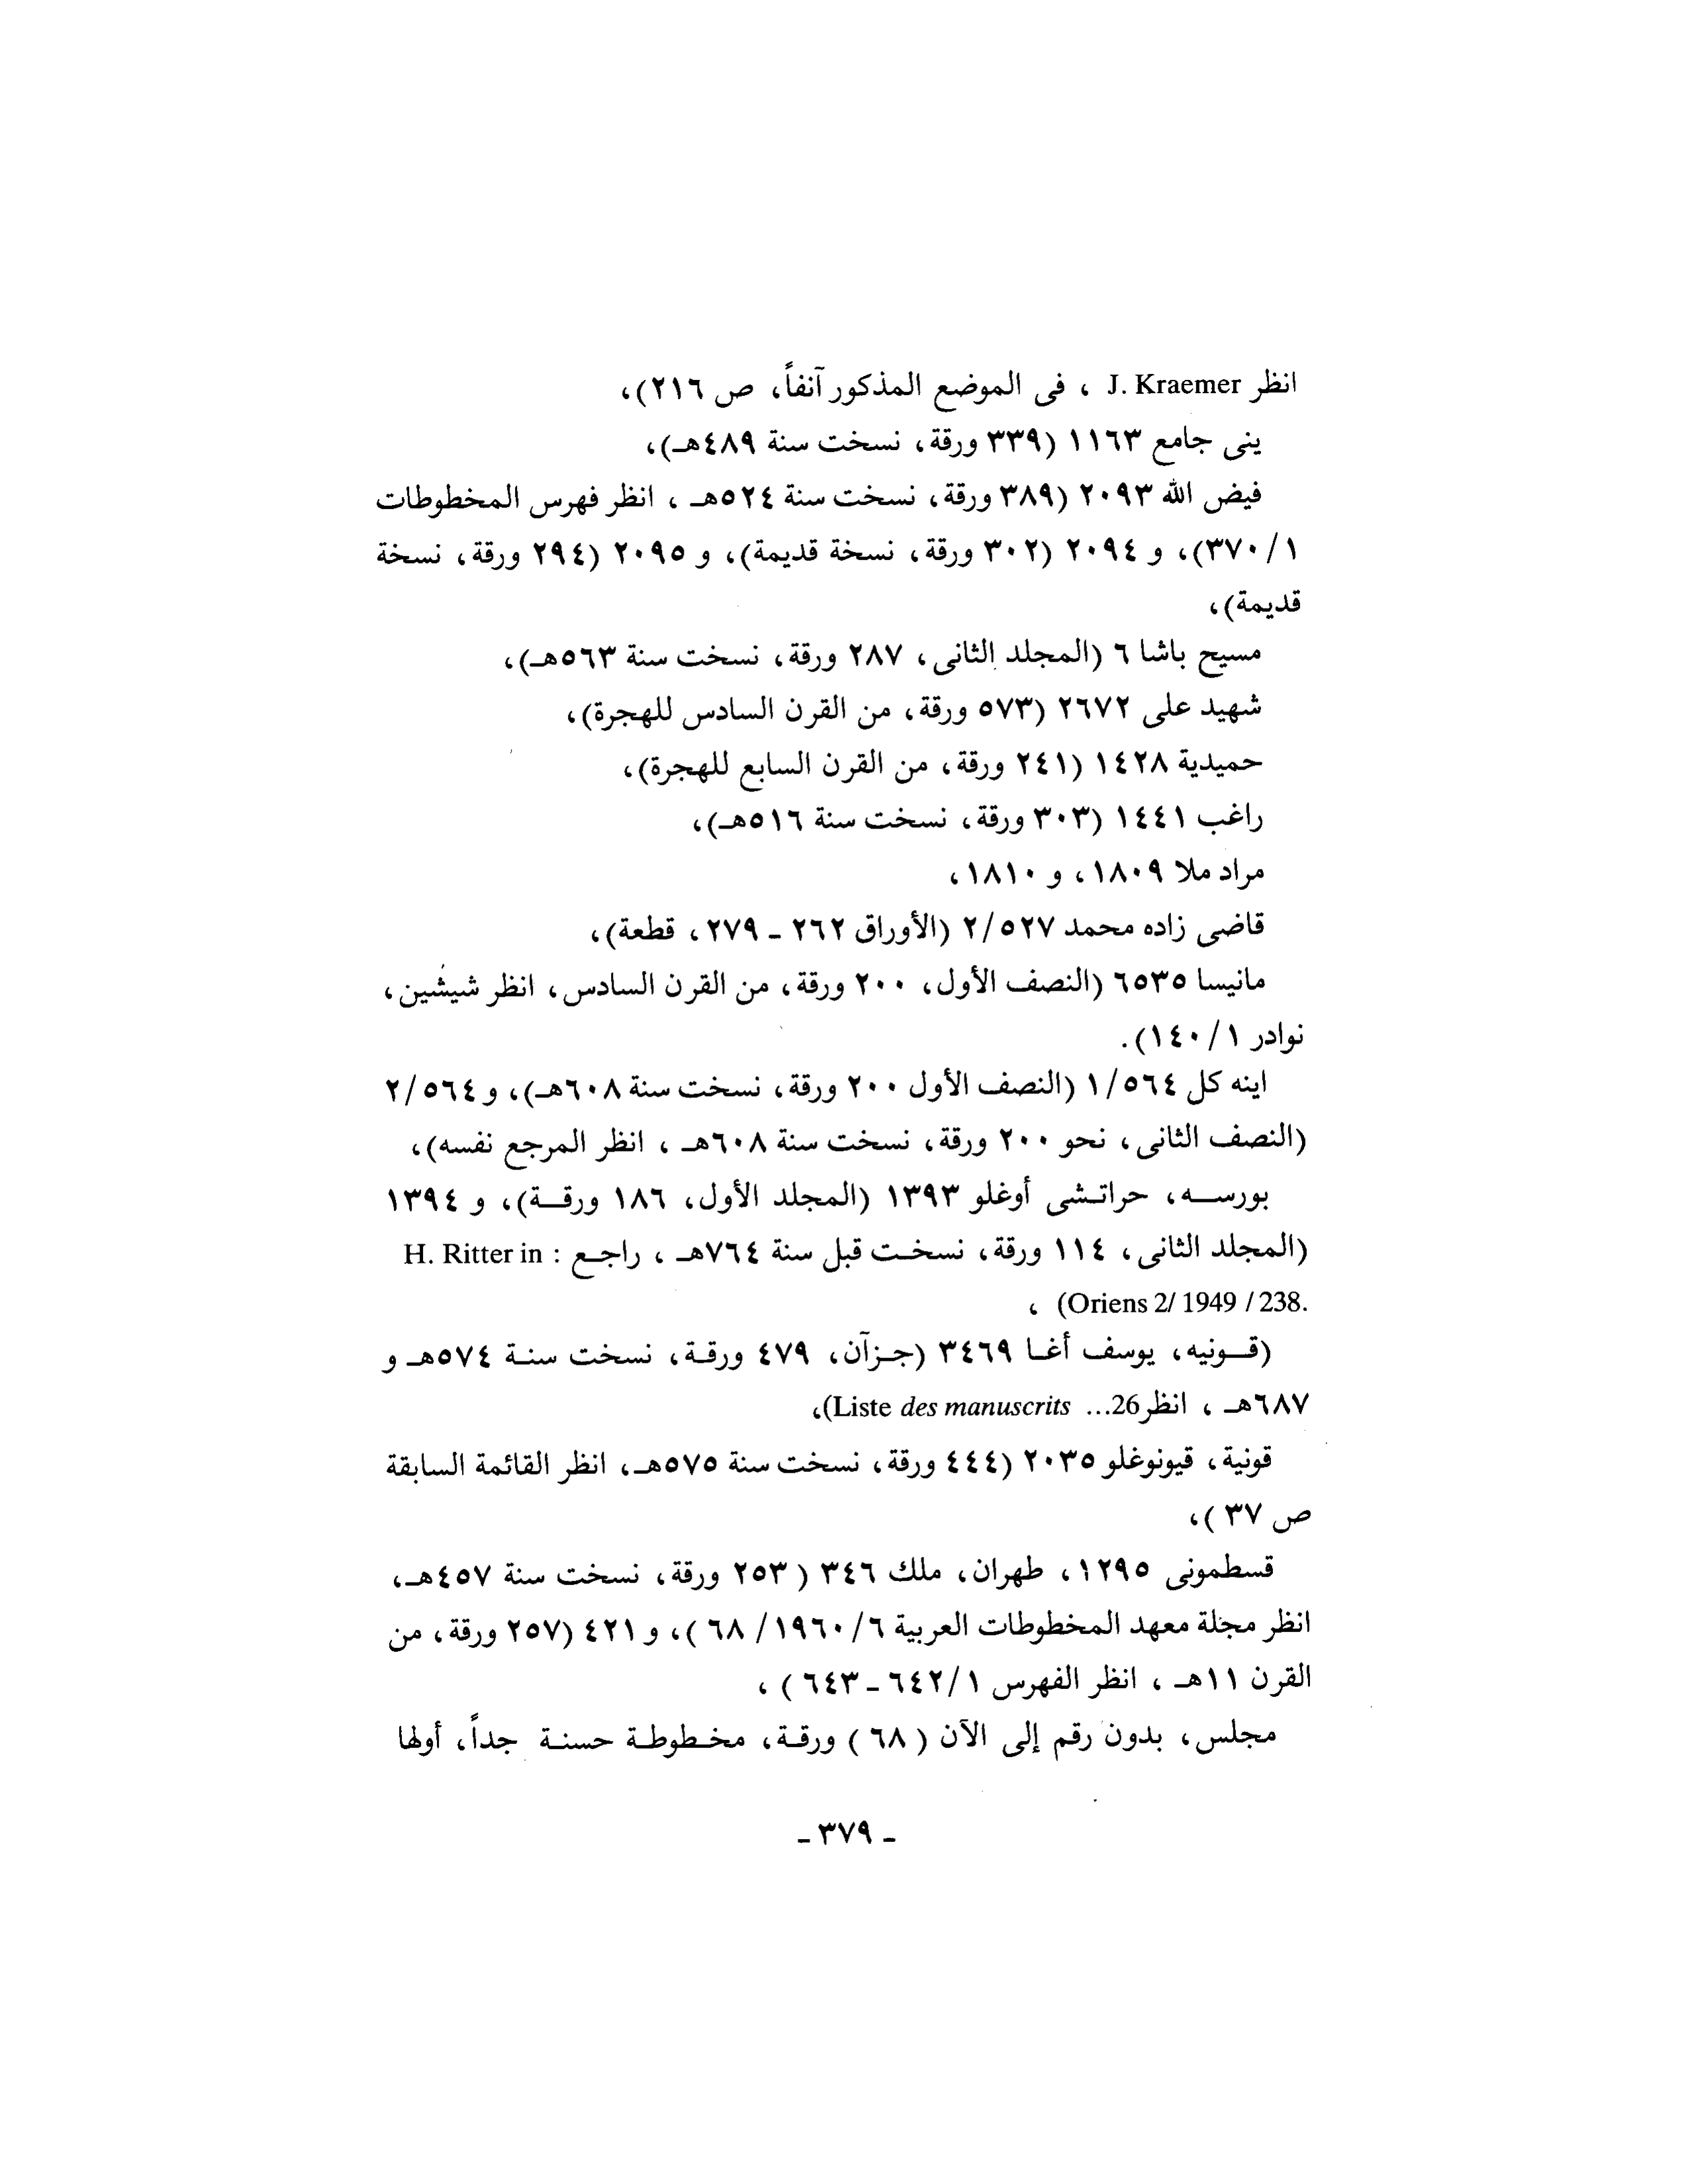 انظر J. Kraemer ، فى الموضع المذكور آنفاً، ص ٢١٦)،
ينى جامع ١١٦٣ (٣٣٩ ورقة، نسخت سنة ٤٨٩هـ)،
فيض الله ٢٠٩٣ (٣٨٩ ورقة، نسخت سنة ٥٢٤هـ ، انظر فهرس المخطوطات
١/ ٣٧٠)، و ٢٠٩٤ (٣٠٢ ورقة، نسخة قديمة)، و ٢٠٩٥ (٢٩٤ ورقة، نسخة
قديمة)،
مسيح باشا ٦ (المجلد الثانى، ٢٨٧ ورقة، نسخت سنة ٥٦٣هـ)،
شهيد على ٢٦٧٢ (٥٧٣ ورقة، من القرن السادس للهجرة)،
حميدية ١٤٢٨ (٢٤١ ورقة، من القرن السابع للهجرة)،
راغب ١٤٤١ (٣٠٣ ورقة، نسخت سنة ٥١٦هـ)،
مراد ملا ١٨٠٩، و ١٨١٠،
قاضى زاده محمد ٥٢٧/ ٢ (الأوراق ٢٦٢ - ٢٧٩، قطعة)،
مانيسا ٦٥٣٥ (النصف الأول، ٢٠٠ ورقة، من القرن السادس، انظر شيشين،
نوادر ١/ ١٤٠).
اينه كل ٥٦٤/ ١ (النصف الأول ٢٠٠ ورقة، نسخت سنة ٦٠٨هـ)، و ٥٦٤/ ٢
(النصف الثانى، نحو ٢٠٠ ورقة، نسخت سنة ٦٠٨هـ ، انظر المرجع نفسه)،
بورســه، حراتـشى أوغلو ١٣٩٣ (المجلد الأول، ١٨٦ ورقــة)، و ١٣٩٤
(المجلد الثانى، ١١٤ ورقة، نسخـت قبل سنة ٧٦٤هـ ، راجـع : H. Ritter in
Oriens 2/ 1949 / 238.) ،
(قــونيه، يوسف أغـا ٣٤٦٩ (جـزآن، ٤٧٩ ورقـة، نسخت سنـة ٥٧٤هـ و
٦٨٧هـ ، انظر Liste des manuscrits ...26)،
قونية، قيونوغلو ٢٠٣٥ (٤٤٤ ورقة، نسخت سنة ٥٧٥هـ، انظر القائمة السابقة
ص ٣٧ )،
قسطمونى ١٢٩٥، طهران، ملك ٣٤٦ ( ٢٥٣ ورقة، نسخت سنة ٤٥٧هـ،
انظر مجلة معهد المخطوطات العربية ٦/ ١٩٦٠/ ٦٨ )، و ٤٢١ (٢٥٧ ورقة، من
القرن ١١هـ ، انظر الفهرس ١/ ٦٤٢ - ٦٤٣ ) ،
مجلس، بدون رقم إلى الآن ( ٦٨ ) ورقـة، مخـطوطـة حسنـة جداً، أولها
- ٣٧٩ -